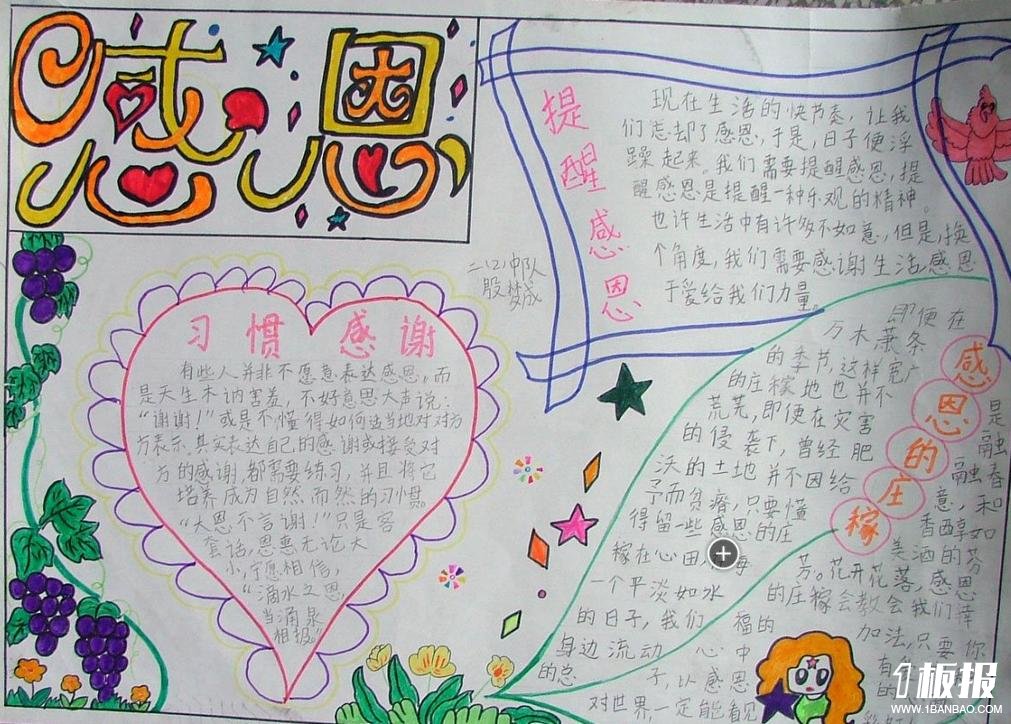 感恩
二(2)中队
殷梦成
习惯感谢
有些人并非不愿意表达感恩,而
是天生木讷害羞,不好意思大声说:
“谢谢!”或是不懂得如何适当地对对方
方表示.其实表达自己的感谢或接受对
方的感谢,都需要练习,并且将它
培养成为自然而然的习惯。
“大恩不言谢!”只是客
套话,恩惠无论大
小,宁愿相信,
“滴水之恩,
当涌泉
相报。”
提醒感恩
现在生活的快节奏,让我
们忘却了感恩,于是,日子便浮
躁起来。我们需要提醒感恩,提
醒感恩是提醒一种乐观的精神。
也许生活中有许多不如意,但是,换
个角度,我们需要感谢生活,感恩
于爱给我们力量。
感恩的庄稼
即便在
万木萧条
的季节,这样宽广
的庄稼地也并不
荒芜,即便在灾害
的侵袭下,曾经肥
沃的土地并不因给
予而贫瘠,只要懂
得留一些感恩的庄
稼在心田,每
一个平淡如水
的日子,我们
身边流动
的总
是
融
融春
意,和
香醇如
美酒的芬
芳。花开花落,感恩
的庄稼会教会我们幸
福的加法,只要你
心中有
子,以感恩的
对世界,一定能看见
1板报
WWW.1BANBAO.COM